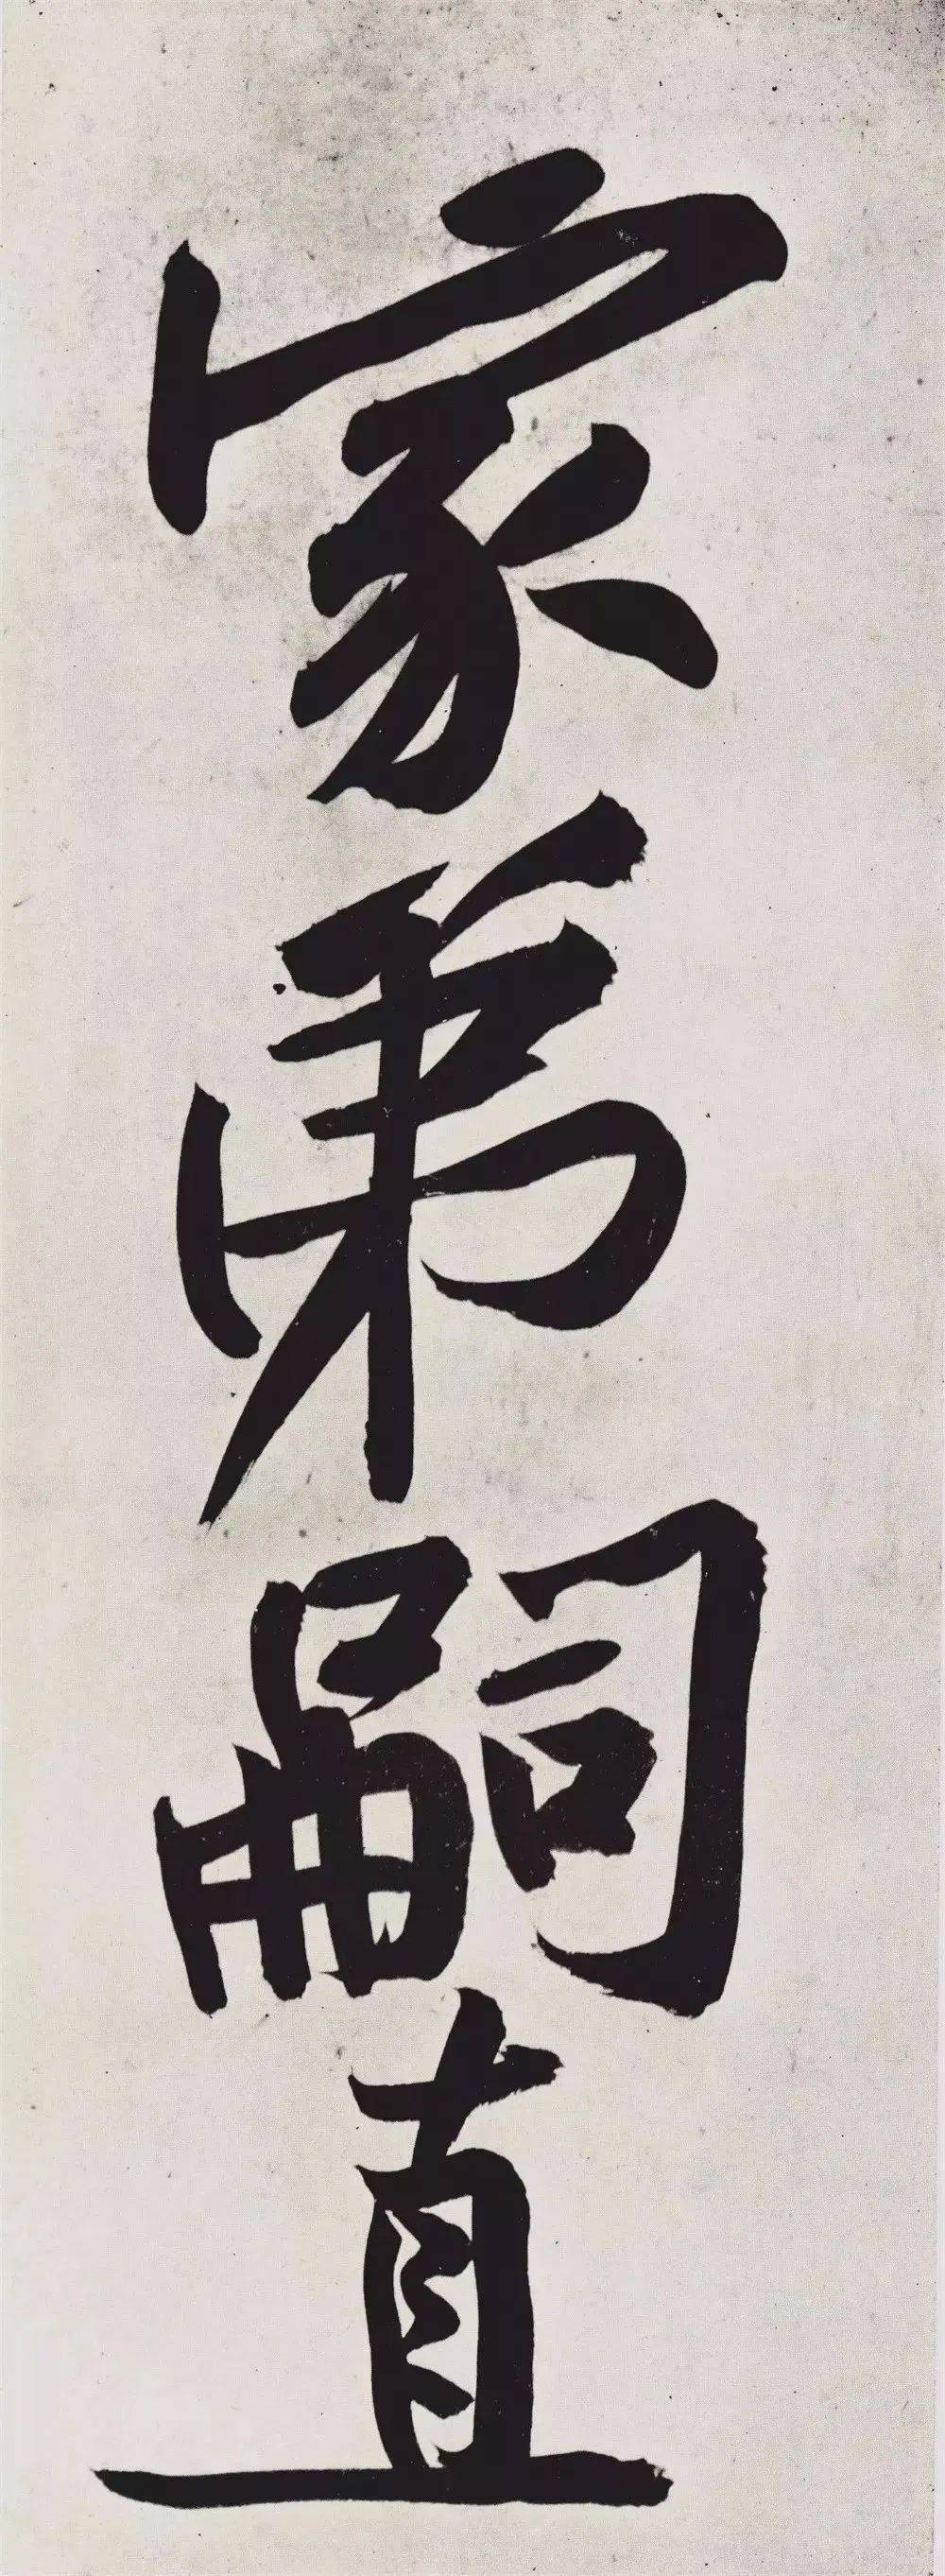 家弟嗣直